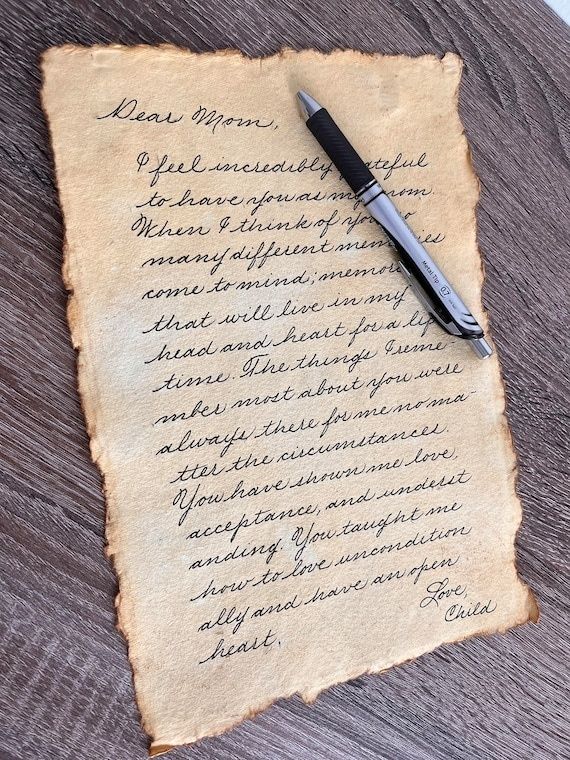 Dear Mom,
I feel incredibly grateful
to have you as my mom.
When I think of you so
many different memories
come to mind; memories
that will live in my
head and heart for a life
time. The things I reme-
mber most about you were
always there for me no ma-
tter the circumstances.
You have shown me love,
acceptance, and underst
anding. You taught me
how to love uncondition
ally and have an open
heart.
Love,
Child
Metal Tip 0.7